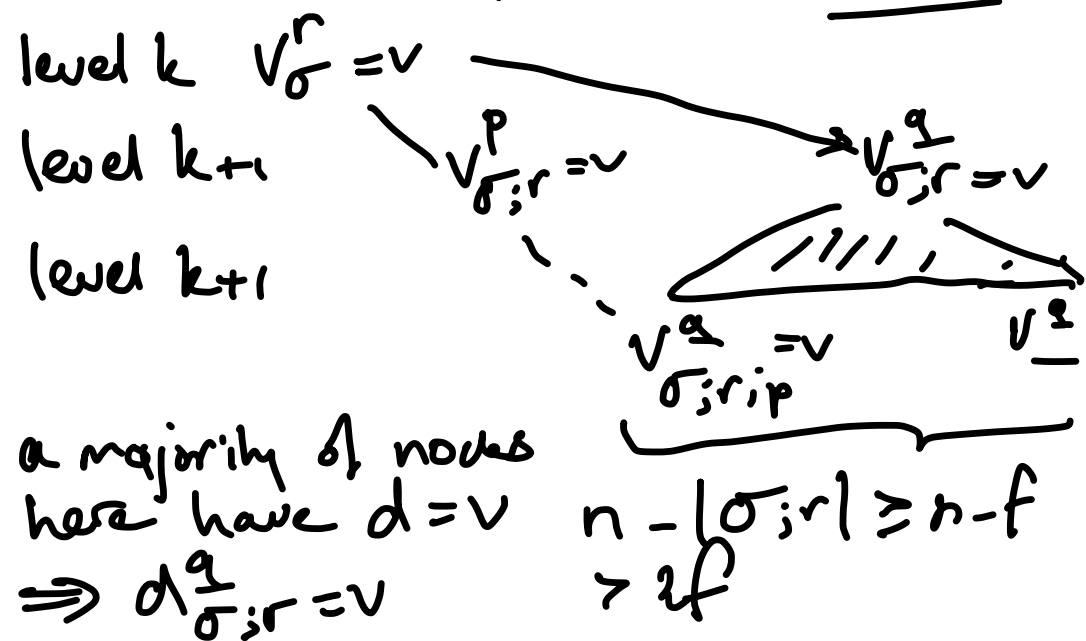 level k V^r_σ = v
level k+1 V^p_{σ;r} = v V^q_{σ;r} = v
level k+1
V^q_{σ;r;p} = v V^q
a majority of nodes
here have d = v n - |σ;r| ≥ n-f
⇒ d^q_{σ;r} = v > 2f